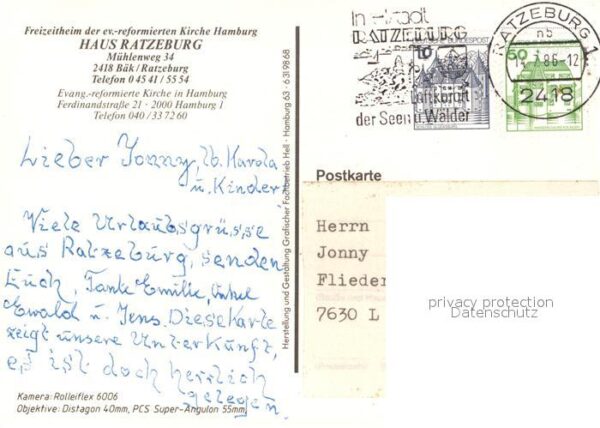 Freizeitheim der ev.-reformierten Kirche Hamburg
HAUS RATZEBURG
Mühlenweg 34
2418 Bäk/Ratzeburg
Telefon 0 45 41 / 55 54
Evang.-reformierte Kirche in Hamburg
Ferdinandstraße 21 · 2000 Hamburg 1
Telefon 040 / 33 72 60
Lieber Jonny, lb. Karola
u. Kinder!
Viele Urlaubsgrüsse
aus Ratzeburg, senden
Euch, Tante Emilie, Onkel
Ewald u. Jens. Diese Karte
zeigt unsere Unterkunft,
es ist doch herrlich
gelegen.
Kamera: Rolleiflex 6006
Objektive: Distagon 40mm, PCS Super-Angulon 55mm
Herstellung und Gestaltung Grafischer Fachbetrieb Hell · Hamburg 63 · 631 98 68
RATZEBURG
Luftkurort
der Seen u. Wälder
10
BUNDESPOST
60
RATZEBURG 1
nb
86-12
2418
Postkarte
Herrn
Jonny
Flieder
7630 L
privacy protection
Datenschutz